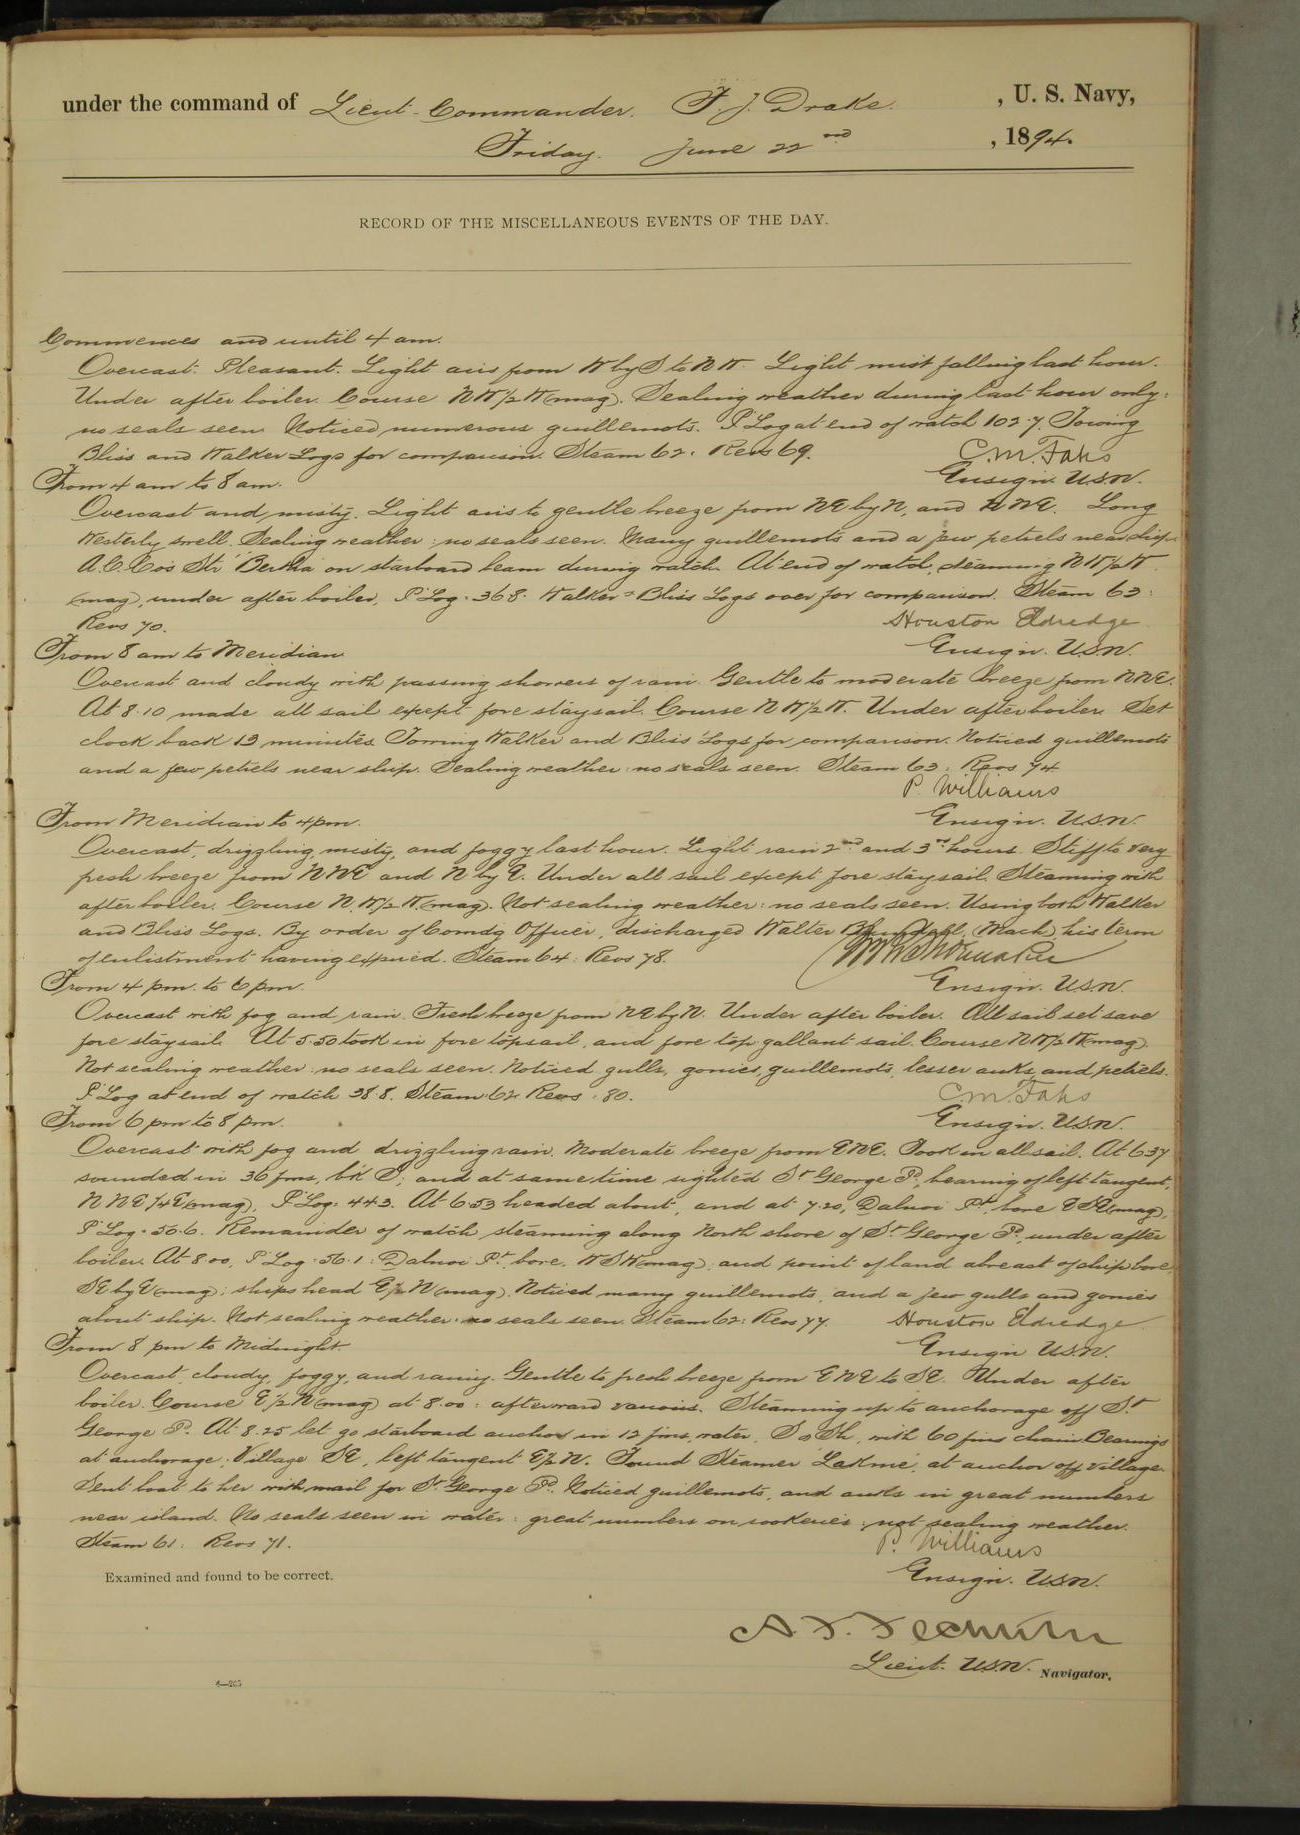 under the command of Lieut-Commander. F. J. Drake. , U. S. Navy,
Friday. June 22nd , 1894.
RECORD OF THE MISCELLANEOUS EVENTS OF THE DAY.
Commences and until 4 am.
Overcast. Pleasant. Light airs from W by S to N W. Light mist falling last hour.
Under after boiler. Course N W 1/2 W (mag). Sealing weather during last hour only:
no seals seen. Noticed numerous guillemots. P. Log at end of watch 102.7. Towing
Bliss and Walker Logs for comparison. Steam 62. Revs 69. C. M. Fahs
From 4 am to 8 am. Ensign. U.S.N.
Overcast and misty. Light airs to gentle breeze from NE by N, and NNE. Long
Westerly swell. Sealing weather: no seals seen. Many guillemots and a few petrels near ship.
A.C. Co's Str "Bertha" on starboard beam during watch. At end of watch, steaming N W 1/2 W
(mag), under after boiler, P. Log. 36.8. Walker & Bliss Logs over for comparison. Steam 63:
Revs 70. Houston Eldredge
From 8 am to Meridian Ensign. U.S.N.
Overcast and cloudy with passing showers of rain. Gentle to moderate breeze from NNE.
At 8.10 made all sail except fore staysail. Course N W 1/2 W. Under after boiler. Set
clock back 13 minutes. Towing Walker and Bliss Logs for comparison. Noticed guillemots
and a few petrels near ship. Sealing weather: no seals seen. Steam 63: Revs 74
P. Williams
From Meridian to 4 pm. Ensign. U.S.N.
Overcast, drizzling, misty, and foggy last hour. Light rain 2nd and 3rd hours. Stiff to very
fresh breeze from NNE and N by E. Under all sail except fore staysail. Steaming with
after boiler. Course N. W 1/2 W. (mag). Not sealing weather: no seals seen. Using both Walker
and Bliss Logs. By order of Comdg Officer, discharged Walter (Mach) his term
of enlistment having expired. Steam 64: Revs 78. W R Shoemaker
From 4 pm. to 6 pm. Ensign. U.S.N.
Overcast with fog and rain. Fresh breeze from NE by N. Under after boiler. All sail set save
fore staysail. At 5.50 took in fore topsail, and fore top gallant sail. Course N W 1/2 W (mag).
Not sealing weather: no seals seen. Noticed gulls, gonies, guillemots, lesser auks, and petrels.
P. Log at end of watch 38.8. Steam 62 Revs. 80. C. M. Fahs
From 6 pm to 8 pm. Ensign. U.S.N.
Overcast with fog and drizzling rain. Moderate breeze from ENE. Took in all sail. At 6.37
sounded in 36 fms, b'k S; and at same time sighted St George Id, bearing of left tangent,
N N E 1/4 E (mag), P. Log: 44.3. At 6.53 headed about, and at 7.20, Dalnoi Pt, bore ESE (mag),
P. Log. 50.6. Remainder of watch steaming along North shore of St George Id, under after
boiler. At 8.00, P. Log. 56.1: Dalnoi Pt, bore, W S W (mag), and point of land abreast of ship bore,
SE by E (mag): ships head E 1/2 N (mag). Noticed many guillemots, and a few gulls and gonies
about ship. Not sealing weather. no seals seen. Steam 62: Revs 77. Houston Eldredge
From 8 pm to Midnight Ensign U.S.N.
Overcast, cloudy, foggy, and rainy. Gentle to fresh breeze from ENE to SE. Under after
boiler. Course E 1/2 N (mag) at 8.00: afterward various. Steaming up to anchorage off St
George Id. At 8.25 let go starboard anchor in 12 fms, water, S & Sh, with 60 fms chain. Bearings
at anchorage, Village SE, left tangent E 1/2 N. Found Steamer "Lakme" at anchor off village.
Sent boat to her with mail for St George Id. Noticed guillemots, and auks in great numbers
near island. No seals seen in water: great numbers on rookeries: not sealing weather.
Steam 61: Revs 71. P. Williams
Examined and found to be correct. Ensign. U.S.N.
Lieut. U.S.N. Navigator.